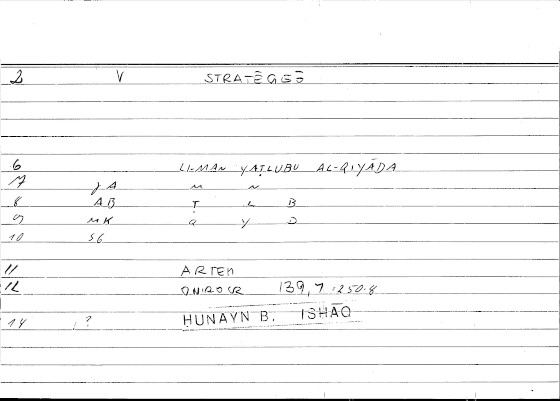 2 V STRATĒGEŌ
6 LI-MAN YAṬLUBU AL-QIYĀDA
7 JA M N
8 AB Ṭ L B
9 MK Q Y D
10 SG
11 ARTEM
12 ONIROCR 139,7 :250.8
14 ,? HUNAYN B. ISHĀQ